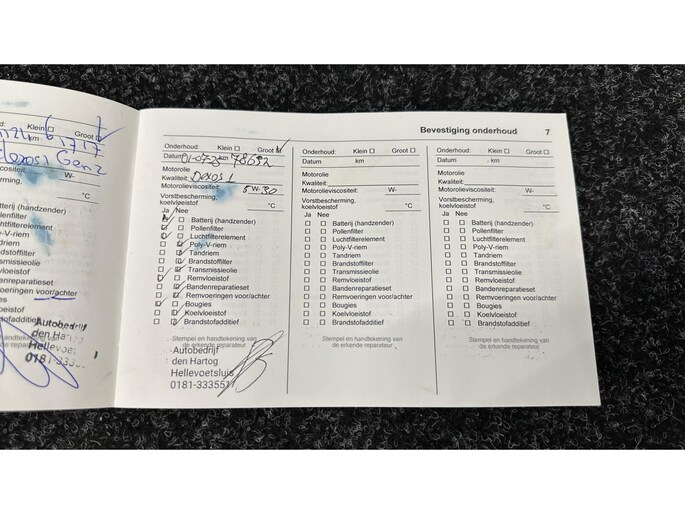 Klein ☐
Groot ☐
km
dexos1 Gen2
W-
°C
voeringen voor/achter
Autobedrijf
den Ha
Hellevoet
Bevestiging onderhoud 7
Onderhoud: Klein ☐ Groot ☐
Datum 01-07-23 km 78692
Motorolie
Kwaliteit: Dexos 1
Motorolieviscositeit: 5W-30
Vorstbescherming,
koelvloeistof °C
Ja Nee
Batterij (handzender)
Pollenfilter
Luchtfilterelement
Poly-V-riem
Tandriem
Brandstoffilter
Transmissieolie
Remvloeistof
Bandenreparatieset
Remvoeringen voor/achter
Bougies
Koelvloeistof
Brandstofadditief
Stempel en handtekening van
de erkende reparateur
Autobedrijf
den Hartog
Hellevoetsluis
0181-3335517
Onderhoud: Klein ☐ Groot ☐
Datum km
Motorolie
Kwaliteit:
Motorolieviscositeit: W-
Vorstbescherming,
koelvloeistof °C
Ja Nee
Batterij (handzender)
Pollenfilter
Luchtfilterelement
Poly-V-riem
Tandriem
Brandstoffilter
Transmissieolie
Remvloeistof
Bandenreparatieset
Remvoeringen voor/achter
Bougies
Koelvloeistof
Brandstofadditief
Stempel en handtekening van
de erkende reparateur
Onderhoud: Klein ☐ Groot ☐
Datum km
Motorolie
Kwaliteit:
Motorolieviscositeit: W-
Vorstbescherming,
koelvloeistof °C
Ja Nee
Batterij (handzender)
Pollenfilter
Luchtfilterelement
Poly-V-riem
Tandriem
Brandstoffilter
Transmissieolie
Remvloeistof
Bandenreparatieset
Remvoeringen voor/achter
Bougies
Koelvloeistof
Brandstofadditief
Stempel en handtekening van
de erkende reparateur